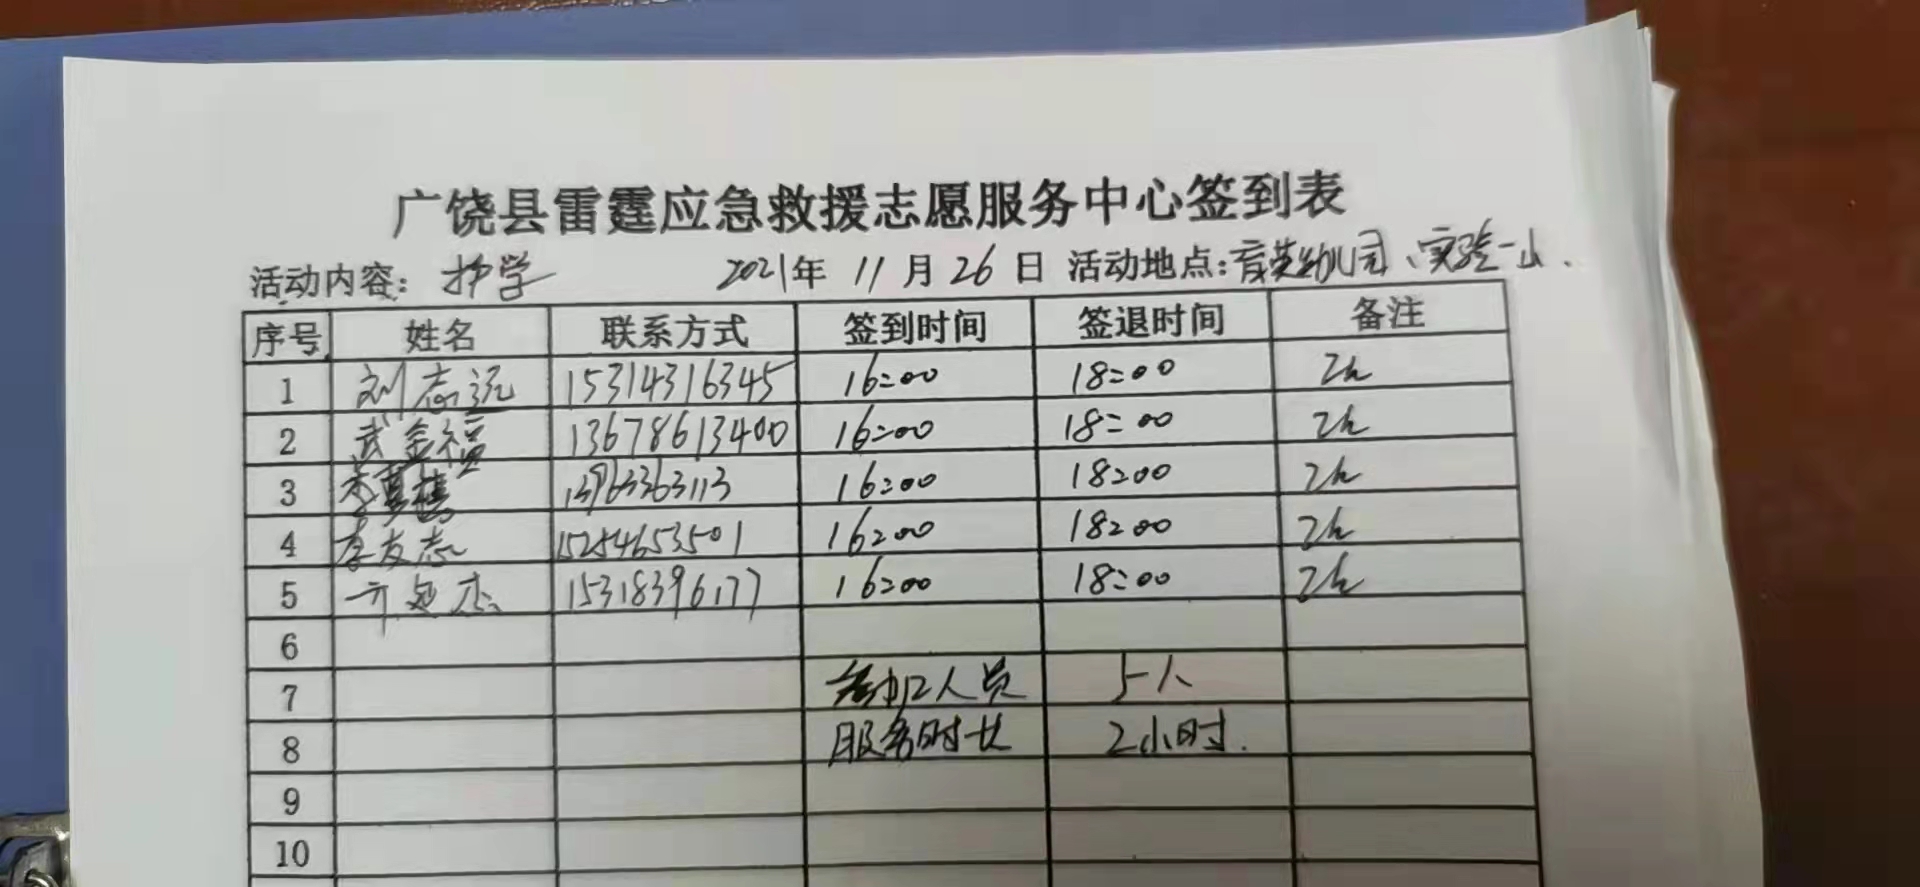 广饶县雷霆应急救援志愿服务中心签到表
活动内容：护学 2021年 11月26日 活动地点：育英幼儿园、实验一小.
序号 姓名 联系方式 签到时间 签退时间 备注
1 刘志远 15314316345 16:00 18:00 2h
2 武金福 13678613400 16:00 18:00 2h
3 13963363113 16:00 18:00 2h
4 李友志 15254653501 16:00 18:00 2h
5 15318396177 16:00 18:00 2h
6
7 参加人员 5人
8 服务时长 2小时.
9
10